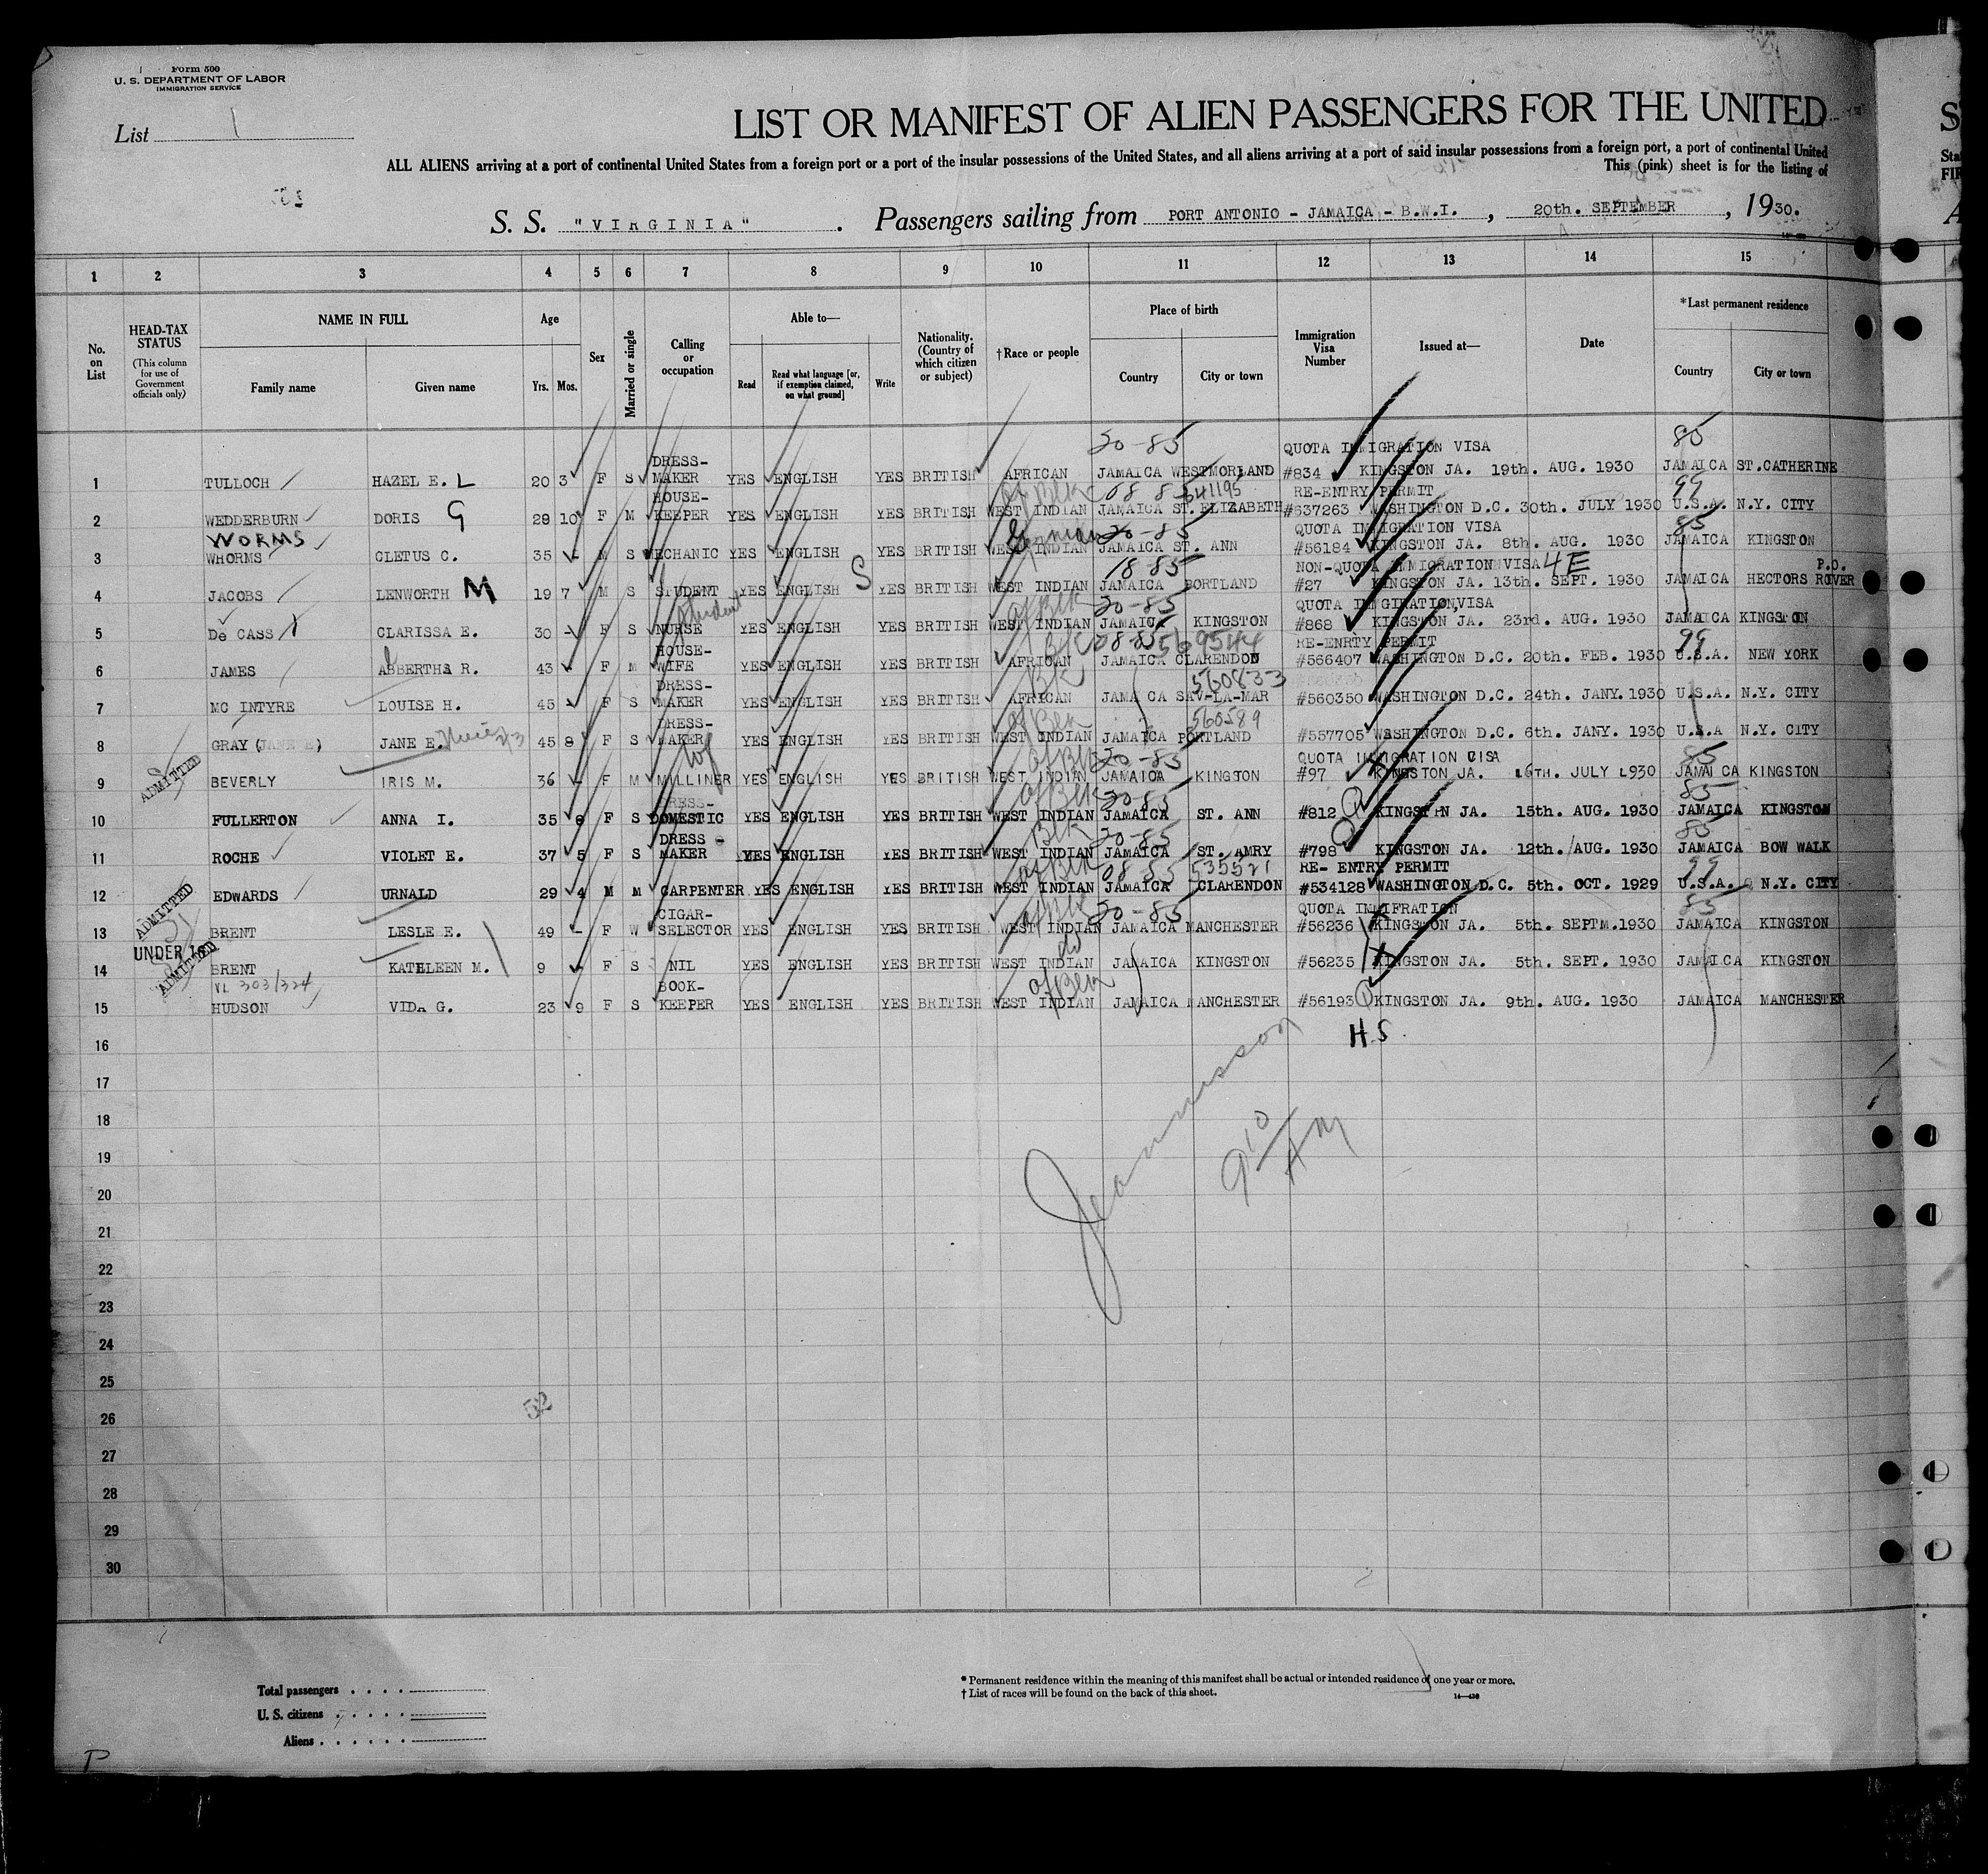 Form 500
U. S. DEPARTMENT OF LABOR
IMMIGRATION SERVICE
List 1
LIST OR MANIFEST OF ALIEN PASSENGERS FOR THE UNITED
ALL ALIENS arriving at a port of continental United States from a foreign port or a port of the insular possessions of the United States, and all aliens arriving at a port of said insular possessions from a foreign port, a port of continental United
This (pink) sheet is for the listing of
S. S. "VIRGINIA" . Passengers sailing from PORT ANTONIO - JAMAICA - B.W.I. , 20th. SEPTEMBER , 1930.
1 2 3 4 5 6 7 8 9 10 11 12 13 14 15
No. on List
HEAD-TAX STATUS (This column for use of Government officials only)
NAME IN FULL Family name Given name
Age Yrs. Mos.
Sex
Married or single
Calling or occupation
Able to— Read Read what language [or, if exemption claimed, on what ground] Write
Nationality. (Country of which citizen or subject)
†Race or people
Place of birth Country City or town
Immigration Visa Number
Issued at—
Date
*Last permanent residence Country City or town
20-85 QUOTA IMMIGRATION VISA 85
1 TULLOCH HAZEL E. L 20 3 F S DRESS-MAKER YES ENGLISH YES BRITISH AFRICAN JAMAICA WESTMORLAND #834 KINGSTON JA. 19th. AUG. 1930 JAMAICA ST.CATHERINE
Af Blk 08 85 641195 RE-ENTRY PERMIT 99
2 WEDDERBURN DORIS G 29 10 F M HOUSE-KEEPER YES ENGLISH YES BRITISH WEST INDIAN JAMAICA ST. ELIZABETH #637263 WASHINGTON D.C. 30th. JULY 1930 U.S.A. N.Y. CITY
WORMS German 20-85 QUOTA IMMIGRATION VISA 85
3 WHORMS CLETUS C. 35 - M S MECHANIC YES ENGLISH YES BRITISH WEST INDIAN JAMAICA ST. ANN #56184 KINGSTON JA. 8th. AUG. 1930 JAMAICA KINGSTON
18-85 NON-QUOTA IMMIGRATION VISA 4E P.O.
4 JACOBS LENWORTH M 19 7 M S STUDENT YES ENGLISH S YES BRITISH WEST INDIAN JAMAICA PORTLAND #27 KINGSTON JA. 13th. SEPT. 1930 JAMAICA HECTORS RIVER
Student Af Blk 20-85 QUOTA IMMGIRATION, VISA
5 De CASS CLARISSA E. 30 - F S NURSE YES ENGLISH YES BRITISH WEST INDIAN JAMAICA KINGSTON #868 KINGSTON JA. 23rd. AUG. 1930 JAMAICA KINGSTON
Blk 08-85 569544 RE-ENRTY PERMIT 99
6 JAMES ABBERTHA R. 43 - F M HOUSE-WIFE YES ENGLISH YES BRITISH AFRICAN JAMAICA CLARENDON #566407 WASHINGTON D.C. 20th. FEB. 1930 U.S.A. NEW YORK
Blk 560833
7 MC INTYRE LOUISE H. 45 - F S DRESS-MAKER YES ENGLISH YES BRITISH AFRICAN JAMA CA SAV-LA-MAR #560350 WASHINGTON D.C. 24th. JANY. 1930 U.S.A. N.Y. CITY
Af Blk 560589
8 GRAY JANE E. 45 8 F S DRESS-MAKER YES ENGLISH YES BRITISH WEST INDIAN JAMAICA PORTLAND #557705 WASHINGTON D.C. 6th. JANY. 1930 U.S.A N.Y. CITY
ADMITTED wf Af Blk 20-85 QUOTA IMMIGRATION CISA 85
9 BEVERLY IRIS M. 36 - F M MILLINER YES ENGLISH YES BRITISH WEST INDIAN JAMAICA KINGSTON #97 KINGSTON JA. 16TH. JULY 1930 JAMAICA KINGSTON
Af Blk 20-85 85
10 FULLERTON ANNA I. 35 8 F S DOMESTIC YES ENGLISH YES BRITISH WEST INDIAN JAMAICA ST. ANN #812 KINGSTON JA. 15th. AUG. 1930 JAMAICA KINGSTON
Blk 20-85 85
11 ROCHE VIOLET E. 37 5 F S DRESS-MAKER YES ENGLISH YES BRITISH WEST INDIAN JAMAICA ST. AMRY #798 KINGSTON JA. 12th. AUG. 1930 JAMAICA BOW WALK
Af Blk 08 85 535521 RE- ENTRY PERMIT 99
12 EDWARDS URNALD 29 4 M M CARPENTER YES ENGLISH YES BRITISH WEST INDIAN JAMAICA CLARENDON #534128 WASHINGTON D.C. 5th. OCT. 1929 U.S.A. N.Y. CITY
ADMITTED Af Blk 20-85 QUOTA IMMIFRATION 85
13 BRENT LESLE E. 49 - F W CIGAR-SELECTOR YES ENGLISH YES BRITISH WEST INDIAN JAMAICA MANCHESTER #56236 KINGSTON JA. 5th. SEPTM.1930 JAMAICA KINGSTON
UNDER 16 ADMITTED do
14 BRENT KATHLEEN M. 9 - F S NIL YES ENGLISH YES BRITISH WEST INDIAN JAMAICA KINGSTON #56235 KINGSTON JA. 5th. SEPT. 1930 JAMAICA KINGSTON
VL 303/324 Af Blk
15 HUDSON VIDA G. 23 9 F S BOOK-KEEPER YES ENGLISH YES BRITISH WEST INDIAN JAMAICA MANCHESTER #56193 KINGSTON JA. 9th. AUG. 1930 JAMAICA MANCHESTER
16 H.S.
17
18
19
20
21
22
23
24
25
26
27
28
29
30
9 10 AM
52
Total passengers . . . .
U. S. citizens . . . . .
Aliens . . . . . .
* Permanent residence within the meaning of this manifest shall be actual or intended residence of one year or more.
† List of races will be found on the back of this sheet.
14—430
P